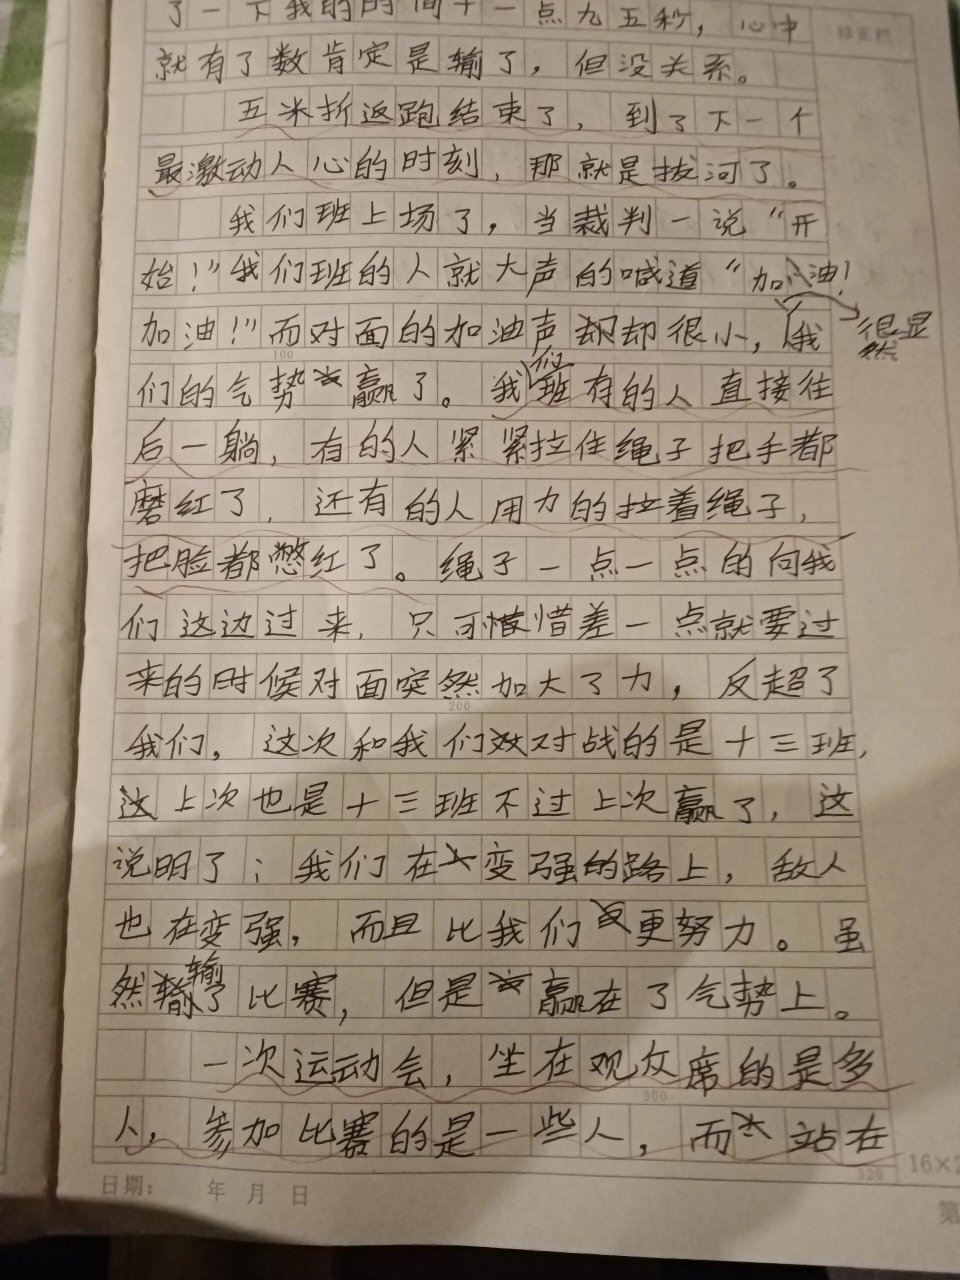 了一下我的时间十一点九五秒，心中
修正栏
就有了数肯定是输了，但没关系。
五米折返跑结束了，到了下一个
最激动人心的时刻，那就是拔河了。
我们班上场了，当裁判一说“开
始！”我们班的人就大声的喊道“加油！
加油！”而对面的加油声却却很小，我
很显然
100
们的气势赢了。我们班有的人直接往
后一躺，有的人紧紧拉住绳子把手都
磨红了，还有的人用力的拉着绳子，
把脸都憋红了。绳子一点一点的向我
们这边过来，只可惜差一点就要过
来的时候对面突然加大了力，反超了
200
我们，这次和我们对战的是十三班，
这上次也是十三班不过上次赢了，这
说明了；我们在变强的路上，敌人
也在变强，而且比我们更努力。虽
然输了比赛，但是赢在了气势上。
一次运动会，坐在观众席的是多
300
人，参加比赛的是一些人，而站在
320
16×2
日期： 年 月 日
第